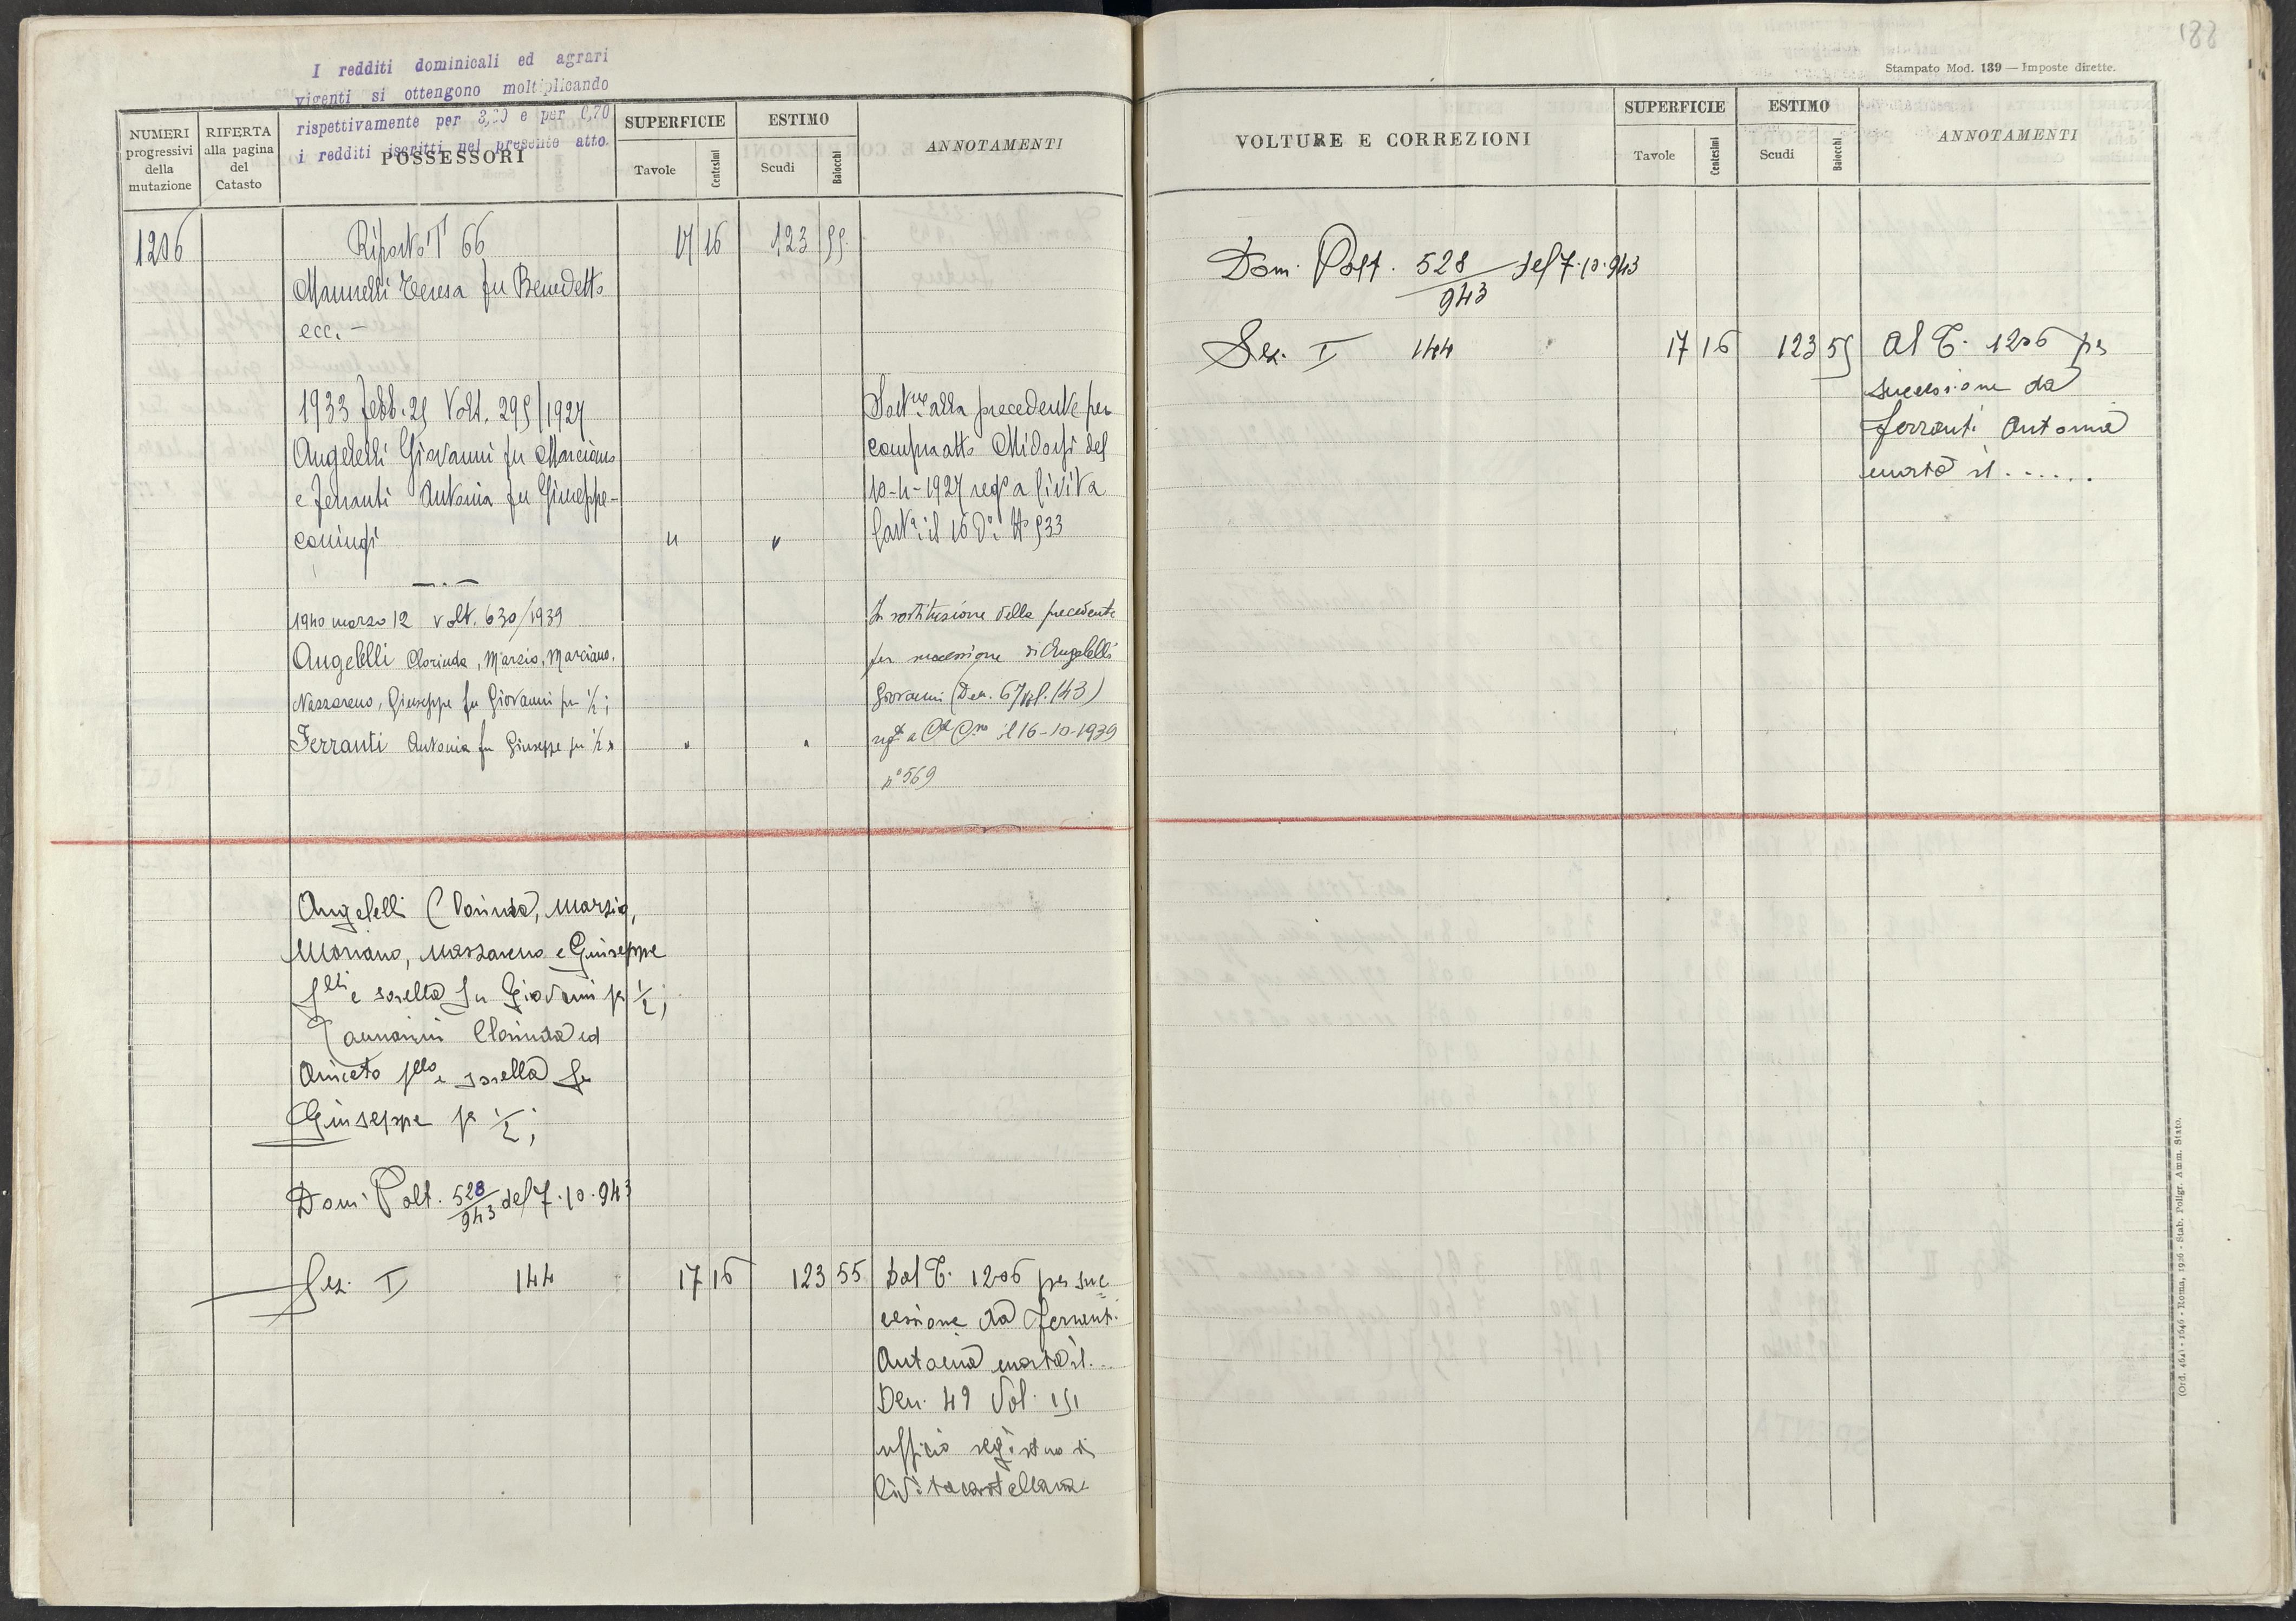 I redditi dominicali ed agrari
vigenti si ottengono moltiplicando
rispettivamente per e per 0,70
i redditi iscritti nel presente atto.
NUMERI
progressivi
della
mutazione
RIFERTA
alla pagina
del
Catasto
POSSESSORI
SUPERFICIE
Tavole
Centesimi
ESTIMO
Scudi
Baiocchi
ANNOTAMENTI
1206 Riporto T 66 17 16 123 55
Teresa fu Benedetto
ecc. -
1933 febb. Volt. 295/1927
Angelelli Giovanni fu Marciano
e Ferranti Antonia fu Giuseppe -
coniugi " "
alla precedente per
compra atto del
1927 a Civita
Cast. il 16 D° N°
1940 marzo 12 volt. 630/1939
Angelelli Clorinda, Marzio, Marciano,
Nazzareno, Giuseppe fu Giovanni per 1/2;
Ferranti Antonia fu Giuseppe per 1/2 " "
In sostituzione della precedente
per successione di Angelelli
Giovanni (Den. 67 Vol. 143)
a il 16-10-1939
n° 569
Angelelli Clorinda, Marzio,
Marziano, Nazzareno e Giuseppe
f.lli e sorella fu Giovanni per 1/2;
Clorinda ed
Aniceto f.llo e sorella fu
Giuseppe per 1/2;
Dom. Volt. 528/943 del 7.10.943
Sez. I 144 17 16 123 55
Dal T. 1206 per suc
cessione da Ferranti
Antonia morta il..
Den. 49 Vol. 151
ufficio registro di
Civitacastellana
188
Stampato Mod. 139 — Imposte dirette.
VOLTURE E CORREZIONI
SUPERFICIE
Tavole
Centesimi
ESTIMO
Scudi
Baiocchi
ANNOTAMENTI
Dom. Volt. 528/943 del 7.10.943
Sez. I 144 17 16 123 55
Al T. 1206 per
successione da
Ferranti Antonia
morta il .....
(Ord. 4641 - 1646 - Roma, 1926 - Stab. Poligr. Amm. Stato.